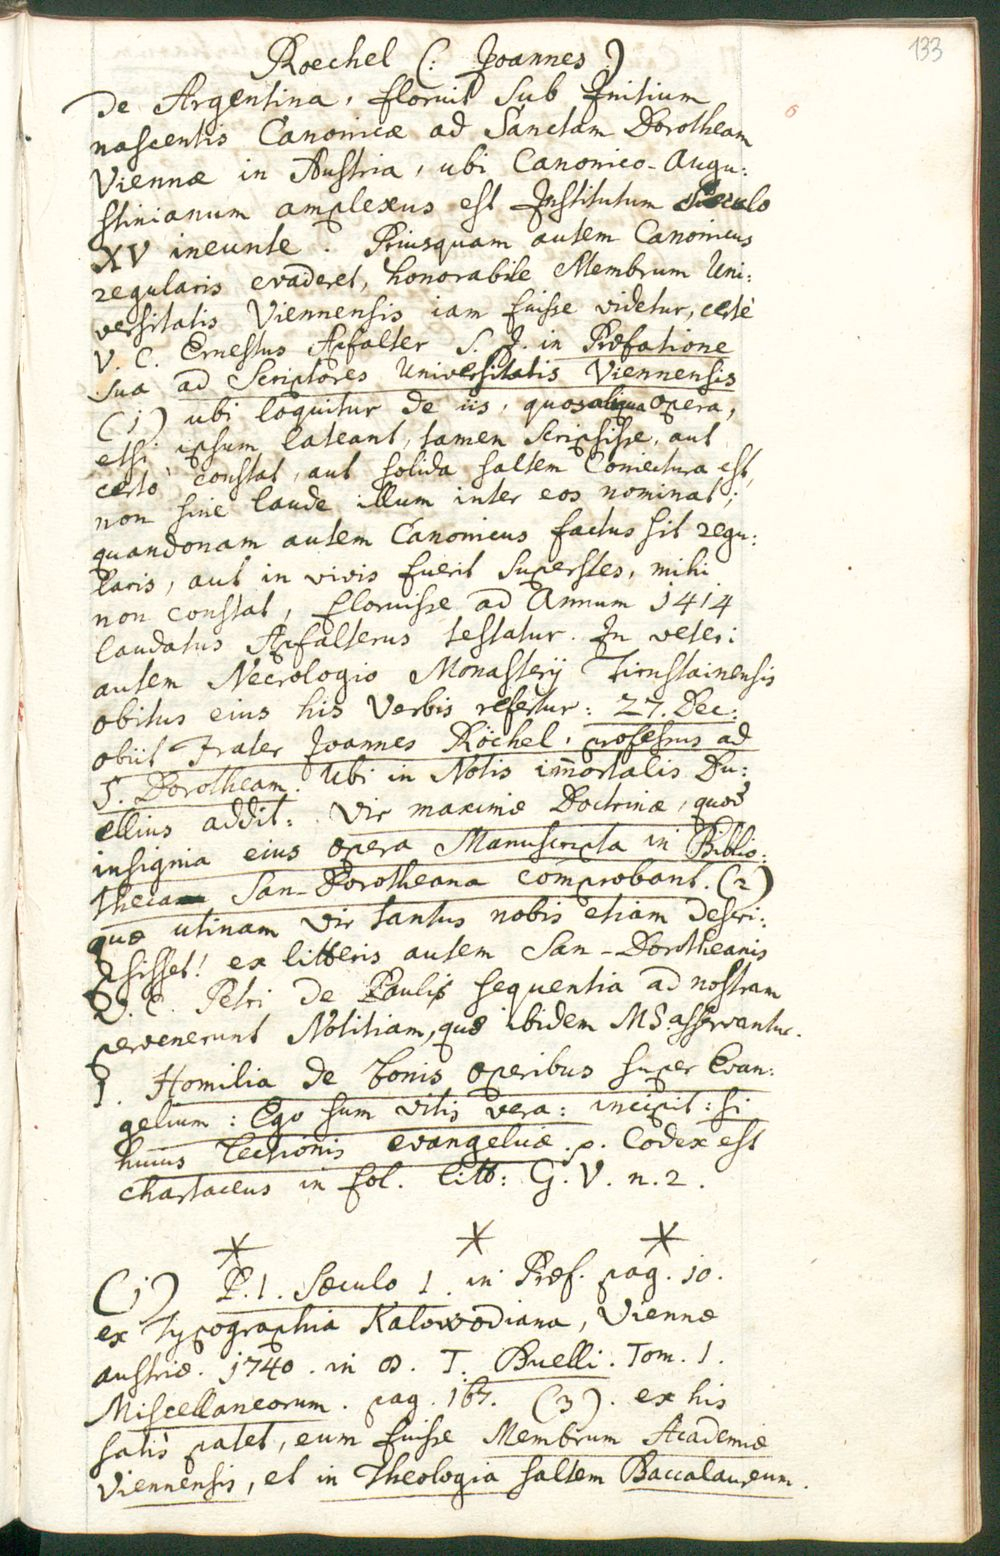 133
Roechel (: Joannes :)
de Argentina, floruit sub Initium
nascentis Canonicæ ad Sanctam Dorotheam
Viennæ in Austria, ubi Canonico-Augu:
stinianum amplexus est Institutum Sæculo
XV ineunte. Priusquam autem Canonicus
regularis evaderet, honorabile Membrum Uni:
versitatis Viennensis iam fuisse videtur, certè
V. C. Ernestus Apfalter S. J. in Præfatione
sua ad Scriptores Universitatis Viennensis
(1) ubi loquitur de iis, quos aliqua opera,
etsi ipsum lateant, tamen scripsisse, aut
certò constat, aut solida saltem Coniectura est,
non sine laude illum inter eos nominat;
quandonam autem Canonicus factus sit regu:
laris, aut in vivis fuerit superstes, mihi
non constat, floruisse ad Annum 1414
laudatus Apfalterus testatur. In veteri
autem Necrologio Monasterij Tirnstainensis
obitus eius his Verbis refertur: 27. Dec:
obiit Frater Joannes Röchel, professus ad
S. Dorotheam. Ubi in Notis im̄ortalis Du:
ellius addit: Vir maximæ Doctrinæ, quod
insignia eius opera Manuscripta in Biblio:
theca San-Dorotheana comprobant. (2)
quæ utinam vir tantus nobis etiam descri:
psisset! ex litteris autem San-Dorotheanis
V. C. Petri de Paulis sequentia ad nostram
pervenerunt Notitiam, quæ ibidem MS. asservantur.
1. Homilia de bonis operibus super Evan:
gelium: Ego sum vitis vera: incipit: si
huius lectionis evangelicæ. p. Codex est
chartaceus in fol. litt: G. V. n. 2.
* * *
(1) P. 1. Sæculo 1. in Præf. pag. 10.
ex Typographia Kaliwodiana, Viennæ
austriæ. 1740. in 8. T. Duelli. Tom. 1.
Miscellaneorum. pag. 167. (3). ex his
satis patet, eum fuisse Membrum Academiæ
Viennensis, et in Theologia saltem Baccalaureum.